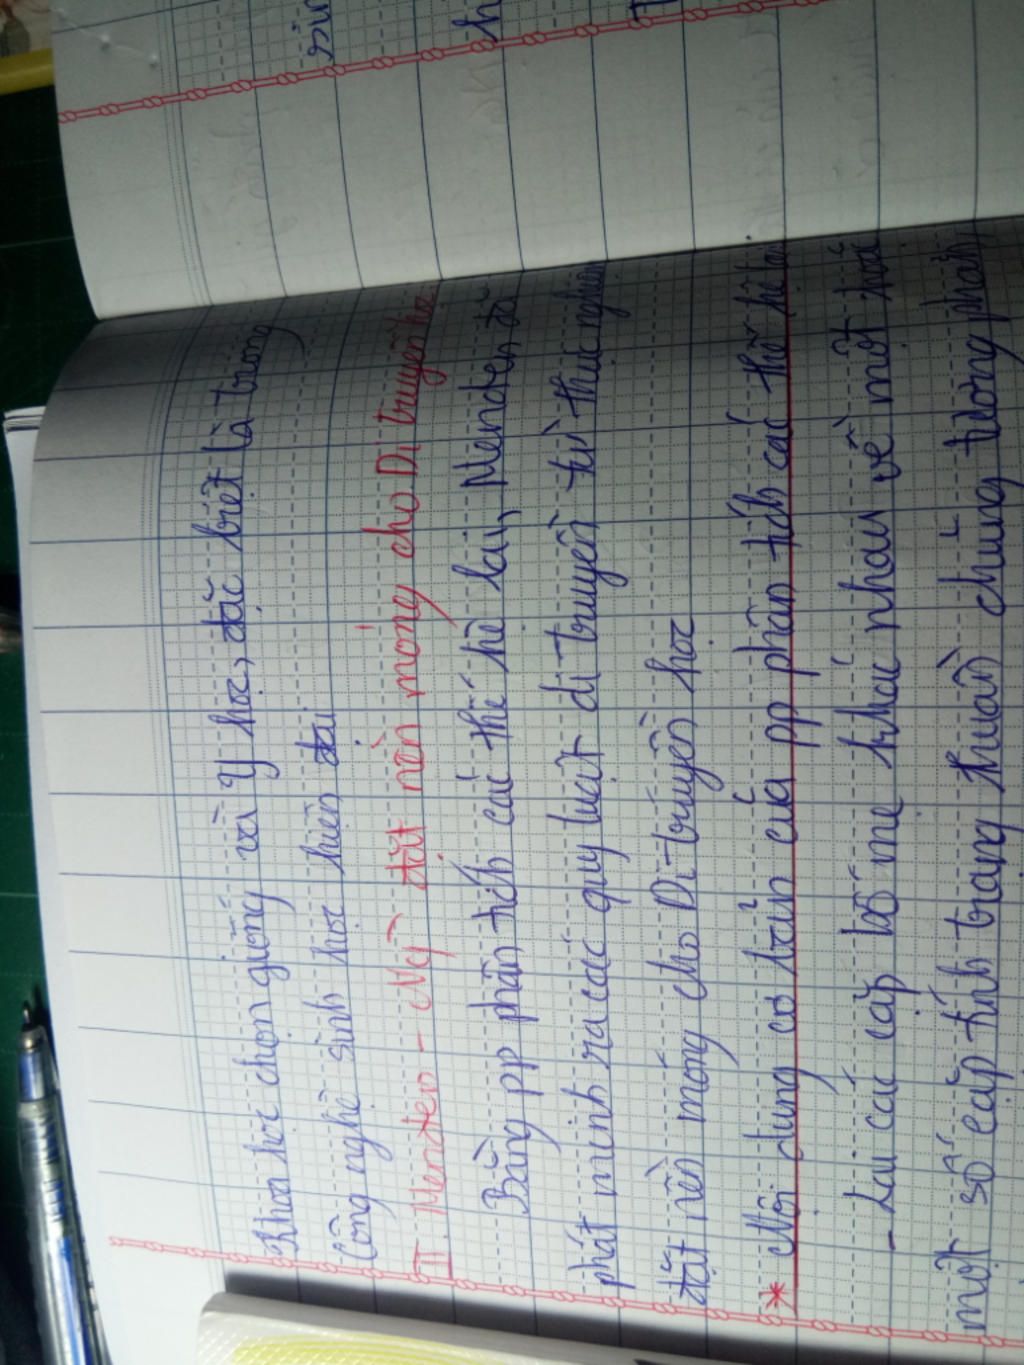 Khoa học chọn giống với Y học, đặc biệt là trong
Công nghệ sinh học hiện đại
II. Menden - Ng đặt nền móng cho Di truyền họ
Bằng pp phân tích các thế hệ lai, Menden đã
phát minh ra các quy luật di truyền từ thực nghiệm
đặt nền móng cho Di truyền học
* Nội dung cơ bản của pp phân tích các thế hệ lai
- Lai các cặp bố mẹ khác nhau về một hoặc
một số cặp tính trạng thuần chủng tương phản
sin
h
T